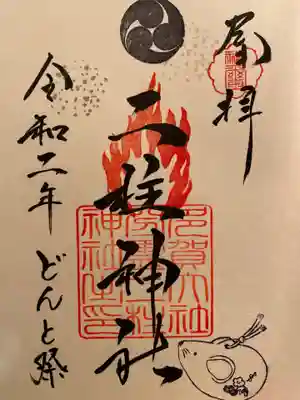 奉拝
二柱神社
令和二年 どんと祭